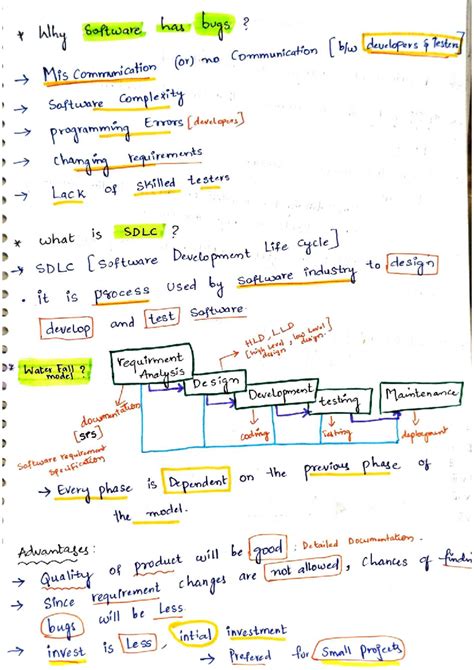 * Why Software has bugs ?
→ Mis Communication (or) no Communication [b/w developers & Testers]
→ Software Complexity
→ programming Errors [developers]
→ changing requirements
→ Lack of skilled testers
* what is SDLC ?
→ SDLC [Software Development Life Cycle]
. it is process used by software industry to design
develop and test Software.
Water Fall model ?
requirment Analysis
Design
HLD, LLD
[high Level design, low Level design.
Development
testing
Maintenance
documentation
[SRS]
Software requirement Specification
coding
testing
deployment
→ Every phase is Dependent on the previous phase of
the model.
Advantages:
→ Quality of product will be good : Detailed Documentation.
→ Since requirement changes are not allowed, chances of finding
bugs will be Less.
→ invest is Less, intial investment
→ Prefered for Small projects